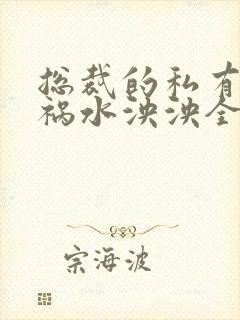 总裁的私有
祸水泱泱全
宗海波